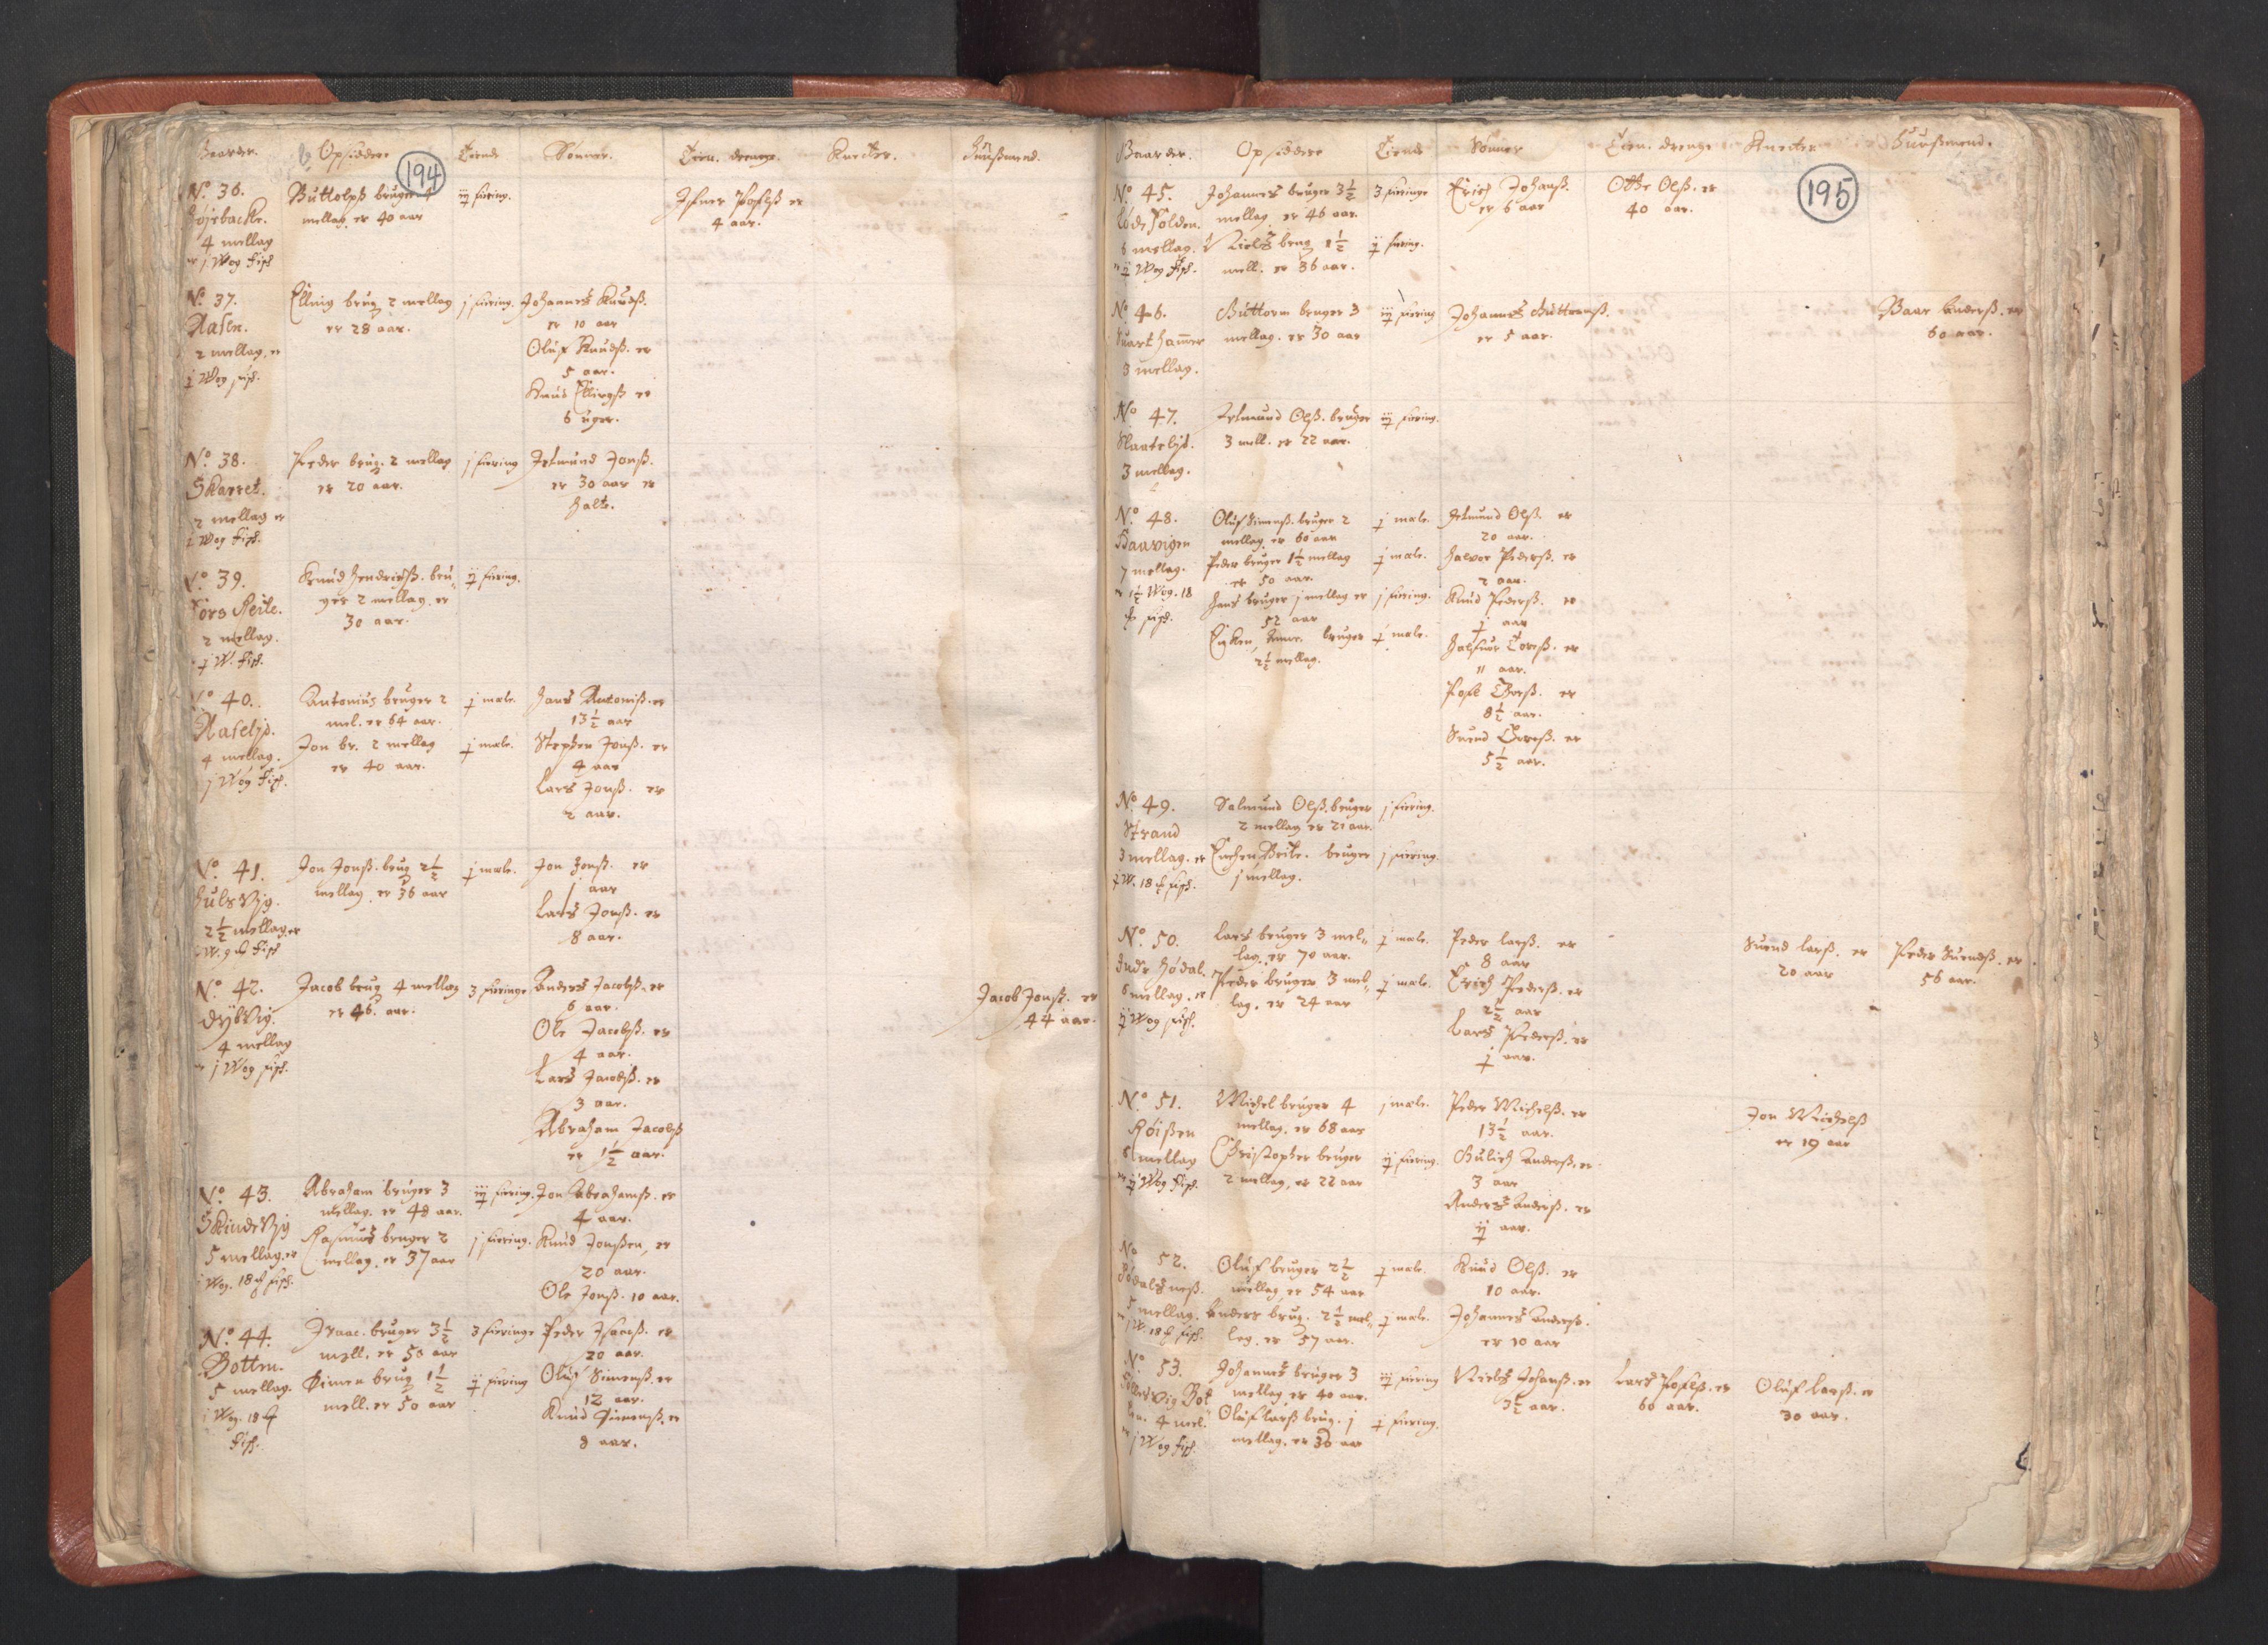 Gaarder. Opsiddere Tiende Sønner. Tien. drenge. Knecter. Huußmend.
194
No. 36.
Højebacke.
4 mellag
er j Wog fisch
Guttolph bruger 4
mellag. er 40 aar
iij fiering.
4 aar.
No. 37.
Aasen.
2 mellag. er
Elling brug 2 mellag
er 28 aar.
j fiering.
Johannes Knudß.
er 10 aar
Oluf Knudß. er
5 aar.
Knud Ellingß er
6 uger.
No. 38.
Skarret.
2 mellag er
Peder brug. 2 mellag
er 20 aar.
j fiering
Jetmund Jonß.
er 30 aar er
halte.
No. 39.
2 mellag.
Knud Hendrichß. bru-
ger 2 mellag. er
30 aar.
ij fiering.
No. 40.
Aaselid.
4 mellag.
j Wog fisch.
Antonius bruger 2
mel. er 64 aar.
Jon br. 2 mellag
er 40 aar.
j mæle.
j mæle.
Hans Antoniß. er
13½ aar
Stephen Jonß. er
4 aar
Lars Jonß. er
2 aar.
No. 41.
2½ mellag er
Jon Jonß. brug 2½
mellag. er 36 aar
j mæle.
Jon Jonß. er
j aar
Lars Jonß. er
8 aar.
No. 42.
Dybvig.
4 mellag
er j Wog fisch.
Jacob brug 4 mellag
er 46. aar.
3 fieringe
Anders Jacobß. er
6 aar.
Ole Jacobß. er
4 aar.
Lars Jacobß. er
3 aar.
Abraham Jacobß
er 1½ aar.
Jacob Jonß. er
44 aar.
No. 43.
Skindevig
5 mellag er
j Wog. 18 fisch.
Abraham bruger 3
mellag. er 48 aar.
Rasmus bruger 2
mellag. er 37 aar
iij fiering.
j fiering.
Jon Abrahamß. er
4 aar.
Knud Jonßen, er
20 aar.
Ole Jonß. 10 aar.
No. 44.
Botten.
5 mellag.
j Wog. 18
fisch.
Isaac. bruger 3½
mell. er 50 aar
Simen brug 1½
mell. er 50 aar
3 fieringe
ij fiering
Peder Isaacß. er
20 aar.
Oluf Simenß. er
12 aar.
Knud Simenß. er
8 aar.
Gaarder. Opsiddere Tiende Sønner Tien. drenge Knecter Huußmend.
195
No. 45.
6 mellag.
er ij Wog fisch.
Johannes bruger 3½
mellag. er 46 aar.
Niels brug 1½
mell. er 36 aar.
3 fieringe
ij fiering.
Erich Johanß.
er 6 aar
Otthe Olß. er
40 aar.
No. 46.
Suarthammer
3 mellag.
Guttorm bruger 3
mellag. er 30 aar
iij fiering
Johannes Guttormß.
er 5 aar.
Baar Anderß. er
60 aar.
No. 47.
Slaatelid.
3 mellag.
Jetmund Olß. bruger
3 mell. er 22 aar.
iij fiering.
No. 48.
Baavigen
7 mellag.
er 1½ Wog. 18
fisch.
Oluf Simenß. bruger 2
mellag. er 60 aar
Peder bruger 1½ mellag
er 50 aar.
Hans bruger j mellag er
52 aar
Encken, Anne. bruger
2½ mellag.
j mæle.
j mæle.
j fiering.
j mæle.
Jetmund Olß. er
20 aar.
Halvor Pederß. er
2 aar.
Knud Pederß. er
j aar
Halfuor Toreß. er
11 aar.
8½ aar.
Suend Toreß. er
5½ aar.
No. 49.
Strand
3 mellag. er
j W. 18 fisch.
Salmund Olß. bruger
2 mellag er 21 aar.
Enchen Brite. bruger
j mellag.
j fiering.
j fiering.
No. 50.
Indre Hødal.
6 mellag. er
ij Wog fisch.
Lars bruger 3 mel-
lag. er 70 aar.
Peder bruger 3 mel-
lag. er 24 aar
j mæle.
j mæle.
Peder Larß. er
8 aar
Erich Pederß. er
2½ aar
Lars Pederß. er
j aar.
Suend Larß. er
20 aar
Peder Suendß. er
56 aar.
No. 51.
Røißen
6 mellag
er ij Wog fisch.
Michel bruger 4
mellag. er 68 aar
Christopher bruger
2 mellag, er 22 aar
j mæle.
ij fiering.
Peder Michelß. er
13½ aar.
Gulich Anderß. er
3 aar
Anders Anderß. er
ij aar.
Jon Michelß
er 19 aar
No. 52.
5 mellag.
Oluf bruger 2½
mellag er 54 aar
Anders brug. 2½ mel-
lag. er 57 aar.
j mæle.
j mæle.
Knud Olß. er
10 aar.
Johannes Anderß.
er 10 aar
No. 53.
4 mel.
er j Wog fisch.
Johannes bruger 3
mellag, er 40 aar.
Oluf Larß brug. j
mellag. er 30 aar
iij fiering
j fiering.
Niels Johanß. er
3½ aar.
60 aar.
Oluf Larß. er
30 aar.